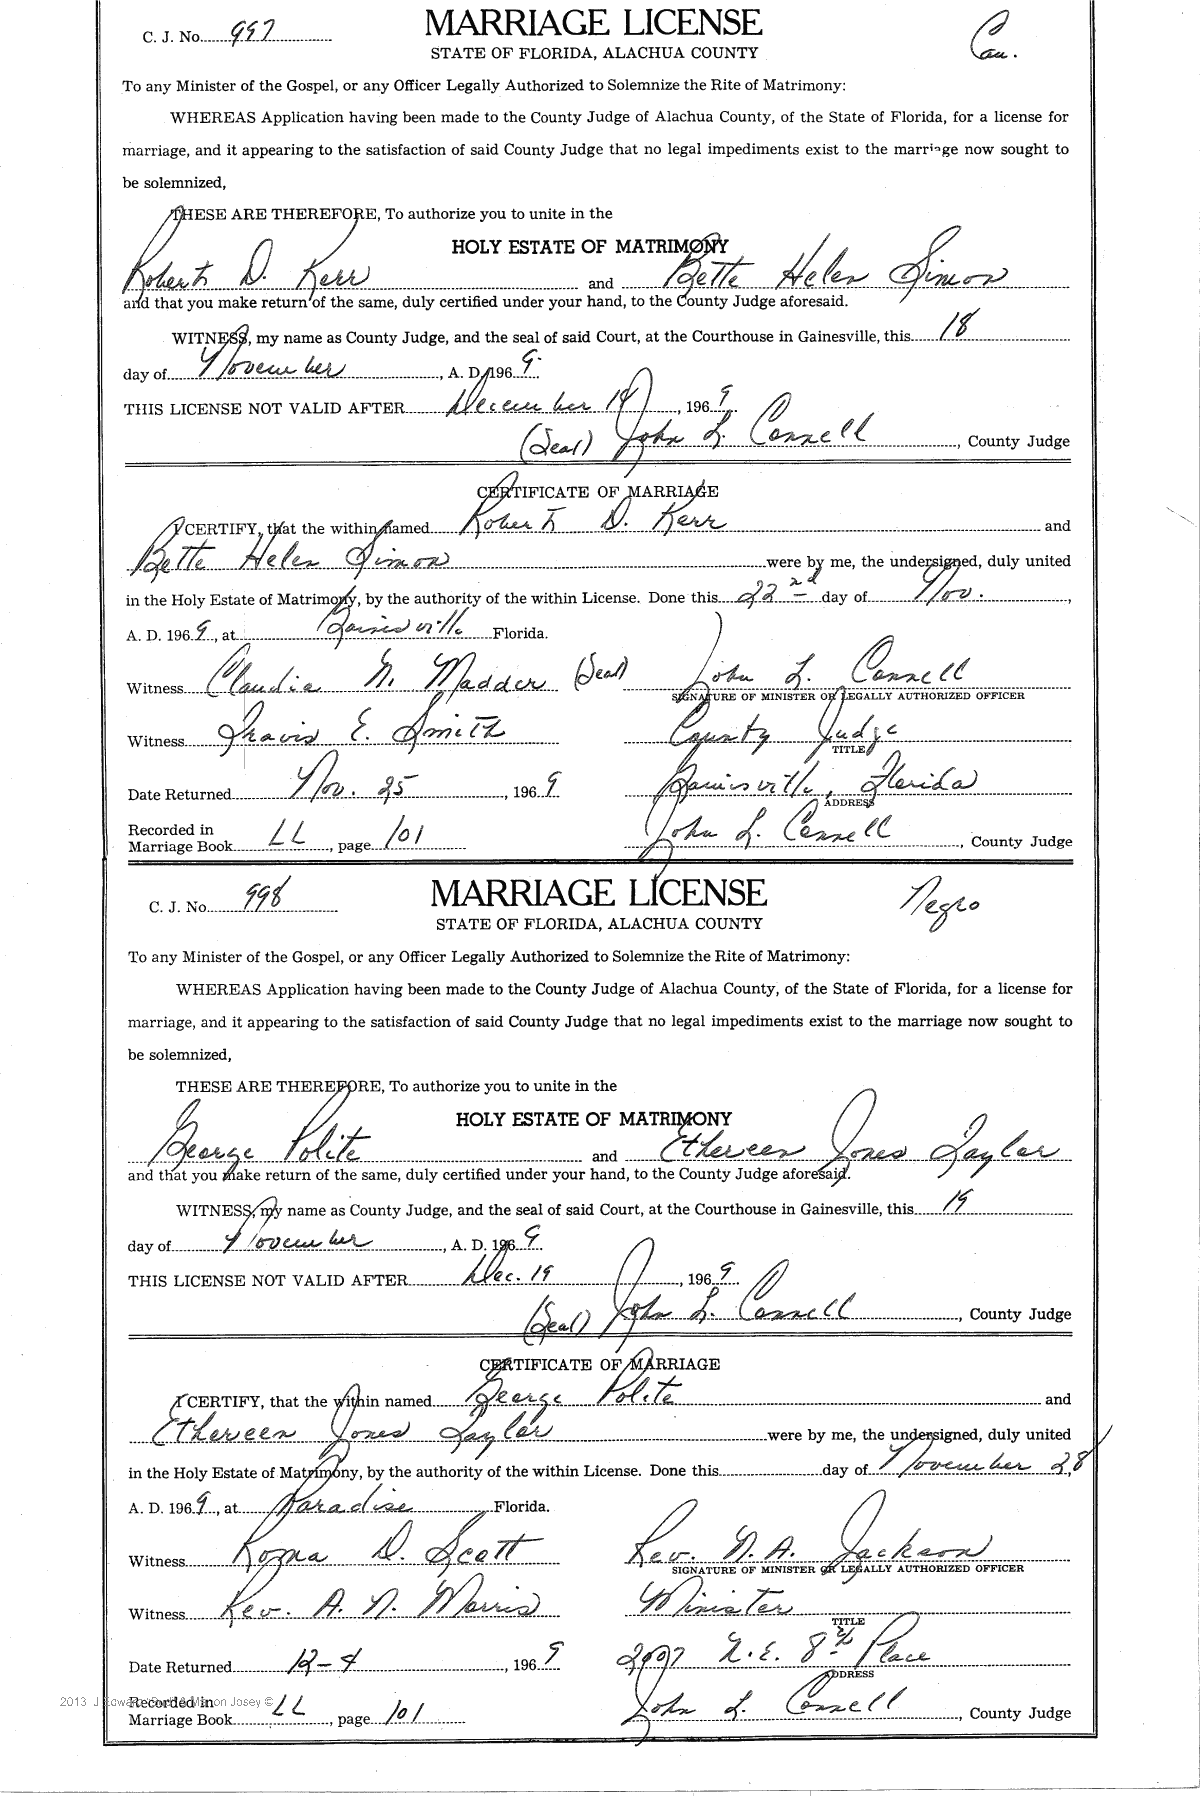 C. J. No. 997
MARRIAGE LICENSE
Cau.
STATE OF FLORIDA, ALACHUA COUNTY
To any Minister of the Gospel, or any Officer Legally Authorized to Solemnize the Rite of Matrimony:
WHEREAS Application having been made to the County Judge of Alachua County, of the State of Florida, for a license for
marriage, and it appearing to the satisfaction of said County Judge that no legal impediments exist to the marriage now sought to
be solemnized,
THESE ARE THEREFORE, To authorize you to unite in the
HOLY ESTATE OF MATRIMONY
Robert D. Kerr and Bette Helen Simon
and that you make return of the same, duly certified under your hand, to the County Judge aforesaid.
WITNESS, my name as County Judge, and the seal of said Court, at the Courthouse in Gainesville, this 18
day of November, A. D. 1969
THIS LICENSE NOT VALID AFTER December 18, 1969
(Seal) John L. Connell, County Judge
CERTIFICATE OF MARRIAGE
I CERTIFY, that the within named Robert D. Kerr and
Bette Helen Simon were by me, the undersigned, duly united
in the Holy Estate of Matrimony, by the authority of the within License. Done this 22nd day of Nov.,
A. D. 1969, at Gainesville Florida.
Witness Claudia N. Madder (Seal) John L. Connell
SIGNATURE OF MINISTER OR LEGALLY AUTHORIZED OFFICER
Witness Travis E. Smith County Judge
TITLE
Date Returned Nov. 25, 1969 Gainesville, Florida
ADDRESS
Recorded in
Marriage Book LL, page 101 John L. Connell, County Judge
C. J. No. 998
MARRIAGE LICENSE
Negro
STATE OF FLORIDA, ALACHUA COUNTY
To any Minister of the Gospel, or any Officer Legally Authorized to Solemnize the Rite of Matrimony:
WHEREAS Application having been made to the County Judge of Alachua County, of the State of Florida, for a license for
marriage, and it appearing to the satisfaction of said County Judge that no legal impediments exist to the marriage now sought to
be solemnized,
THESE ARE THEREFORE, To authorize you to unite in the
HOLY ESTATE OF MATRIMONY
George Polite and Ethereen Jones Taylor
and that you make return of the same, duly certified under your hand, to the County Judge aforesaid.
WITNESS, my name as County Judge, and the seal of said Court, at the Courthouse in Gainesville, this 19
day of November, A. D. 1969
THIS LICENSE NOT VALID AFTER Dec. 19, 1969
(Seal) John L. Connell, County Judge
CERTIFICATE OF MARRIAGE
I CERTIFY, that the within named George Polite and
Ethereen Jones Taylor were by me, the undersigned, duly united
in the Holy Estate of Matrimony, by the authority of the within License. Done this day of November 28,
A. D. 1969, at Paradise Florida.
Witness D. Scott Rev. N. A. Jackson
SIGNATURE OF MINISTER OR LEGALLY AUTHORIZED OFFICER
Witness Rev. A. N. Morris Minister
TITLE
Date Returned 12-4, 1969 N.E. 8th Place
ADDRESS
2013 Josey ©
Recorded in
Marriage Book LL, page 101 John L. Connell, County Judge